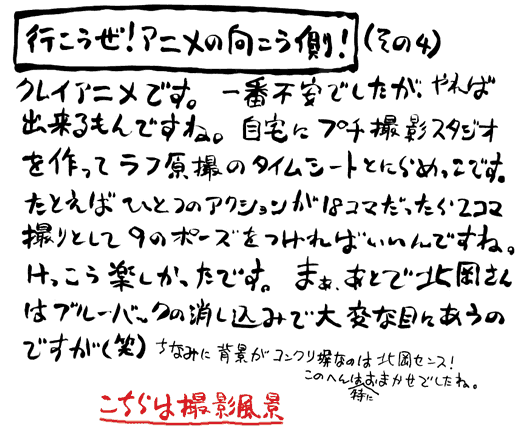 行こうぜ!アニメの向こう側!(その4)
クレイアニメです。一番不安でしたが、やれば
出来るもんですね。自宅にプチ撮影スタジオ
を作ってラフ原撮のタイムシートとにらめっこです。
たとえばひとつのアクションが18コマだったら2コマ
撮りとして9のポーズをつければいいんですね。
けっこう楽しかったです。まぁ、あとで北岡さん
はブルーバックの消し込みで大変な目にあうの
ですが(笑)ちなみに背景がコンクリ塀なのは北岡センス!
このへんは特におまかせでしたね。
こちらは撮影風景